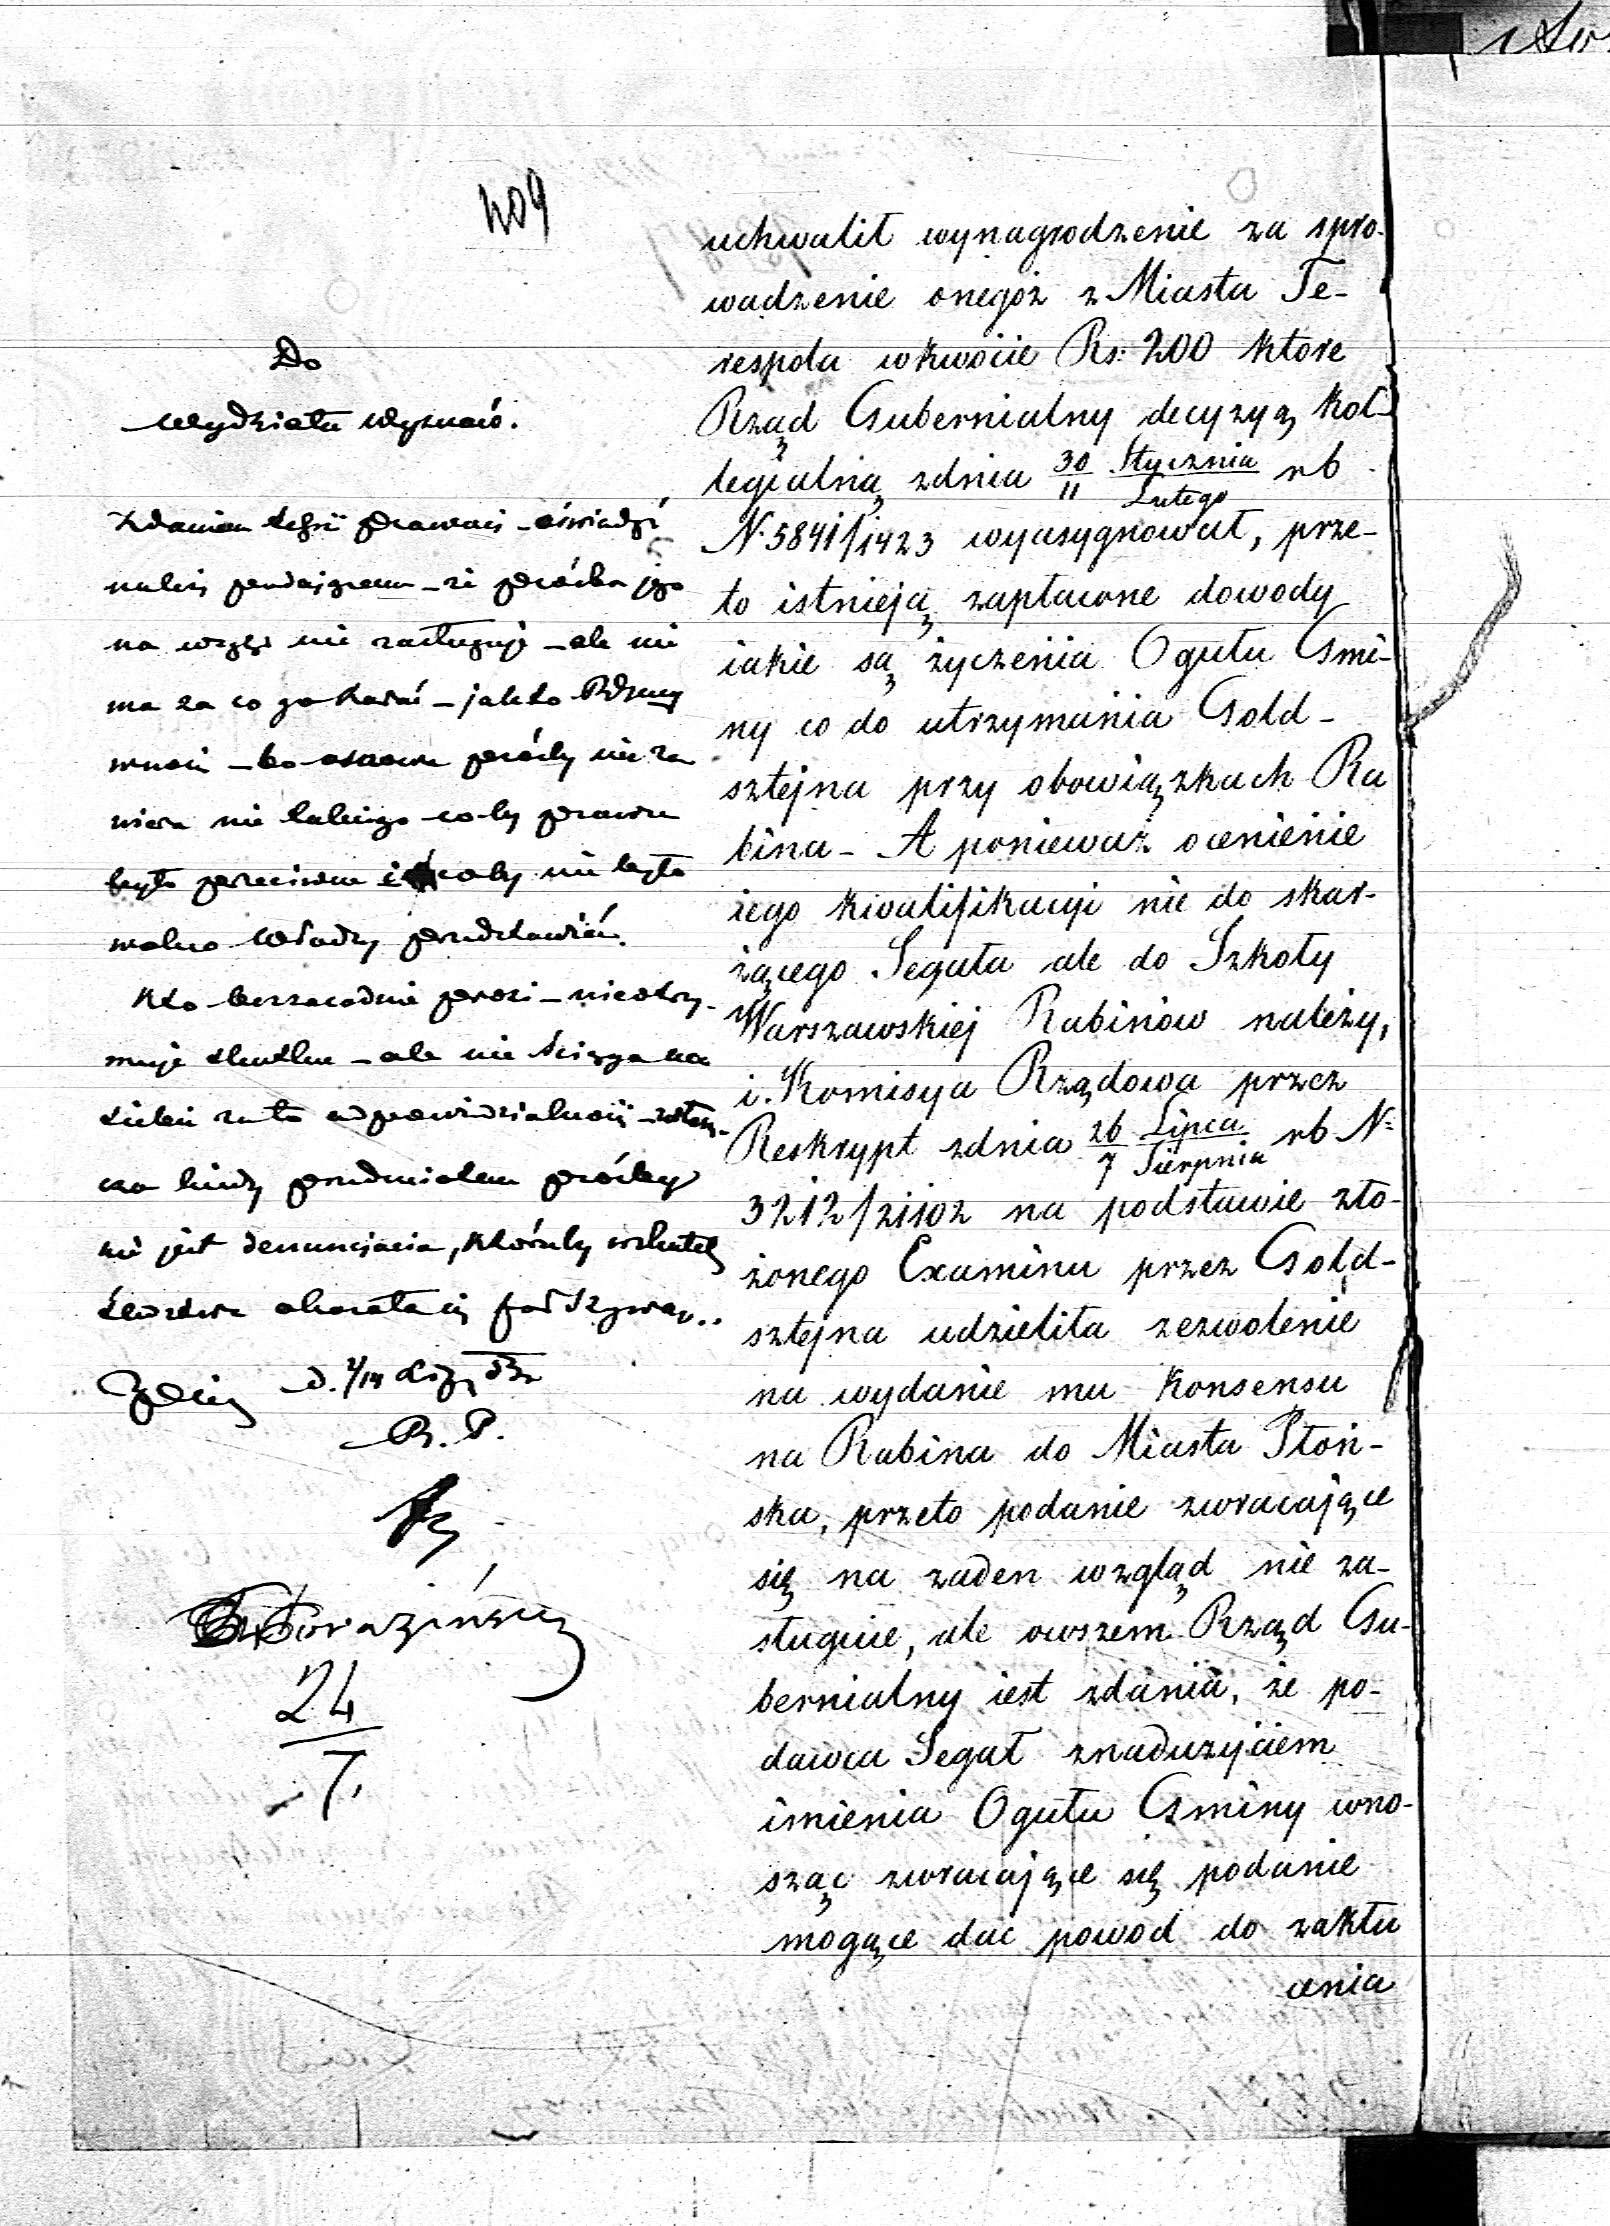 409
Do
Wydziału Wyznań.
Zdaniem Sekcii prawnéj – oświadczyć
należy podającemu – że prośba jego
na wzgląd nie zasługuje – ale nie
ma za co go karać – jak to Rząd
wnosi – bo osnowa prośby nie za
wiera nic takiego co by prawu
było przeciwne i coby nie było
wolno Władzy przedstawić.
Kto bezzasadnie prosi – nie otrzy-
muje skutku – ale nie ściąga na
siebie za to odpowiedzialności –
kiedy przedmiotem prośby
nie jest denuncjacia, któraby wskutek
śledztwa okazała się fałszywą..
d. 2/14
R. P.
24
7.
uchwalił wynagrodzenie za spro-
wadzenie onegoż z Miasta Te-
respola wkwocie Rs: 200 które
Rząd Gubernialny decyzyą Kol-
legialną zdnia 30/11 Stycznia/Lutego rb
N. 5841/1423 wyasygnował, prze-
to istnieją zapłacone dowody
iakie są życzenia Ogułu Gmi-
ny co do utrzymania Gold-
sztejna przy obowiązkach Ra
bina – A ponieważ ocenienie
iego kwalifikacyi nie do skar-
żącego Segała ale do Szkoły
Warszawskiej Rabinów należy,
i Komisya Rządowa przez
Reskrypt zdnia 26/7 Lipca/Sierpnia rb N:
3212/21102 na podstawie zło-
żonego Examinu przez Gold-
sztejna udzieliła zezwolenie
na wydanie mu Konsensu
na Rabina do Miasta Płoń-
ska, przeto podanie zwracające
się na żaden wzgląd nie za-
sługuie, ale owszem Rząd Gu-
bernialny iest zdania, że po-
dawca Segał znadużyciem
imienia Ogułu Gminy wno-
sząc zwracające się podanie
mogące dać powod do zakłu
cenia